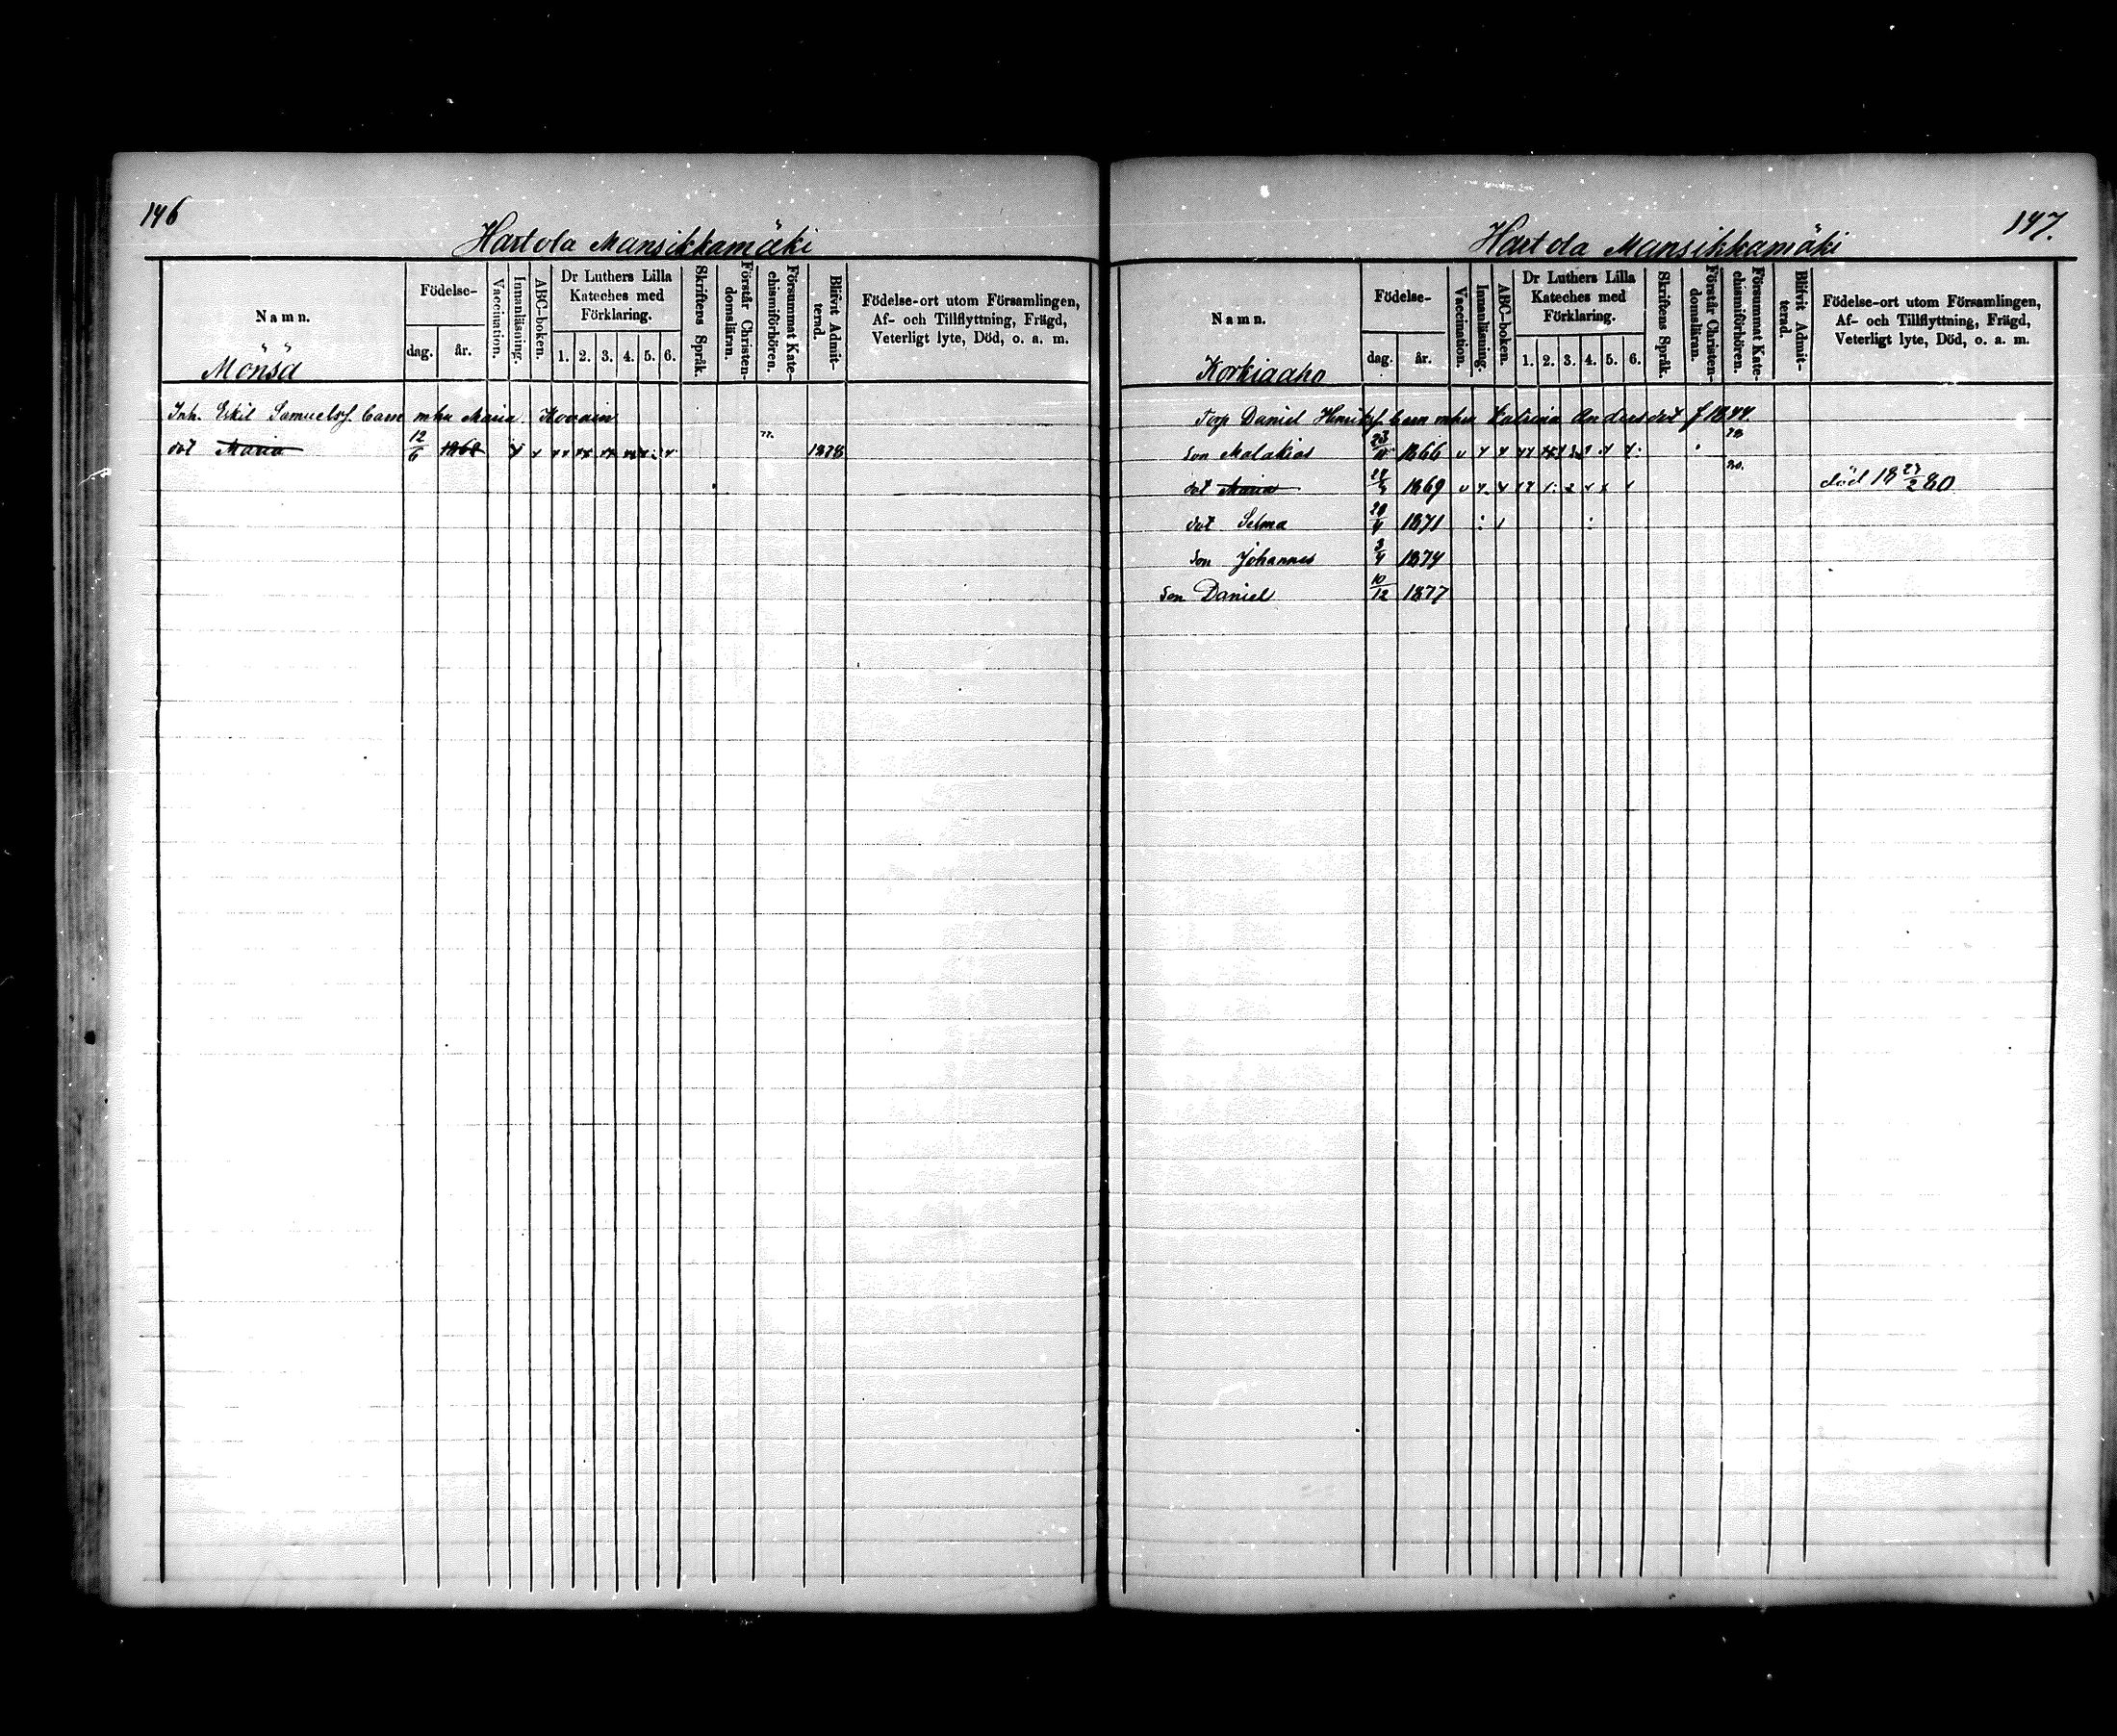 146
Hartola Mansikkamäki
Namn.
Födelse-
dag. år.
Vaccination.
Innanläsning.
ABC-boken.
Dr Luthers Lilla
Kateches med
Förklaring.
1. 2. 3. 4. 5. 6.
Skriftens Språk.
Förstår Christen-
domsläran.
Försummat Kate-
chismiförhören.
Blifvit Admit-
terad.
Födelse-ort utom Församlingen,
Af- och Tillflyttning, Frägd,
Veterligt lyte, Död, o. a. m.
Mönsä
Inh. Eskil Samuelsf. barn m hu Maria
dot Maria 12/6 1862 77. 1878
147.
Hartola Mansikkamäki
Namn.
Födelse-
dag. år.
Vaccination.
Innanläsning.
ABC-boken.
Dr Luthers Lilla
Kateches med
Förklaring.
1. 2. 3. 4. 5. 6.
Skriftens Språk.
Förstår Christen-
domsläran.
Försummat Kate-
chismiförhören.
Blifvit Admit-
terad.
Födelse-ort utom Församlingen,
Af- och Tillflyttning, Frägd,
Veterligt lyte, Död, o. a. m.
Korkiaaho
Torp Daniel Henriksf. barn m hu Katrina Andersdot f 1844
Son Malakias 1866
dot Maria 1869 80. död 18 27/2 80
dot Selma 1871
Son Johannes 3/4 1874
Son Daniel 10/12 1877